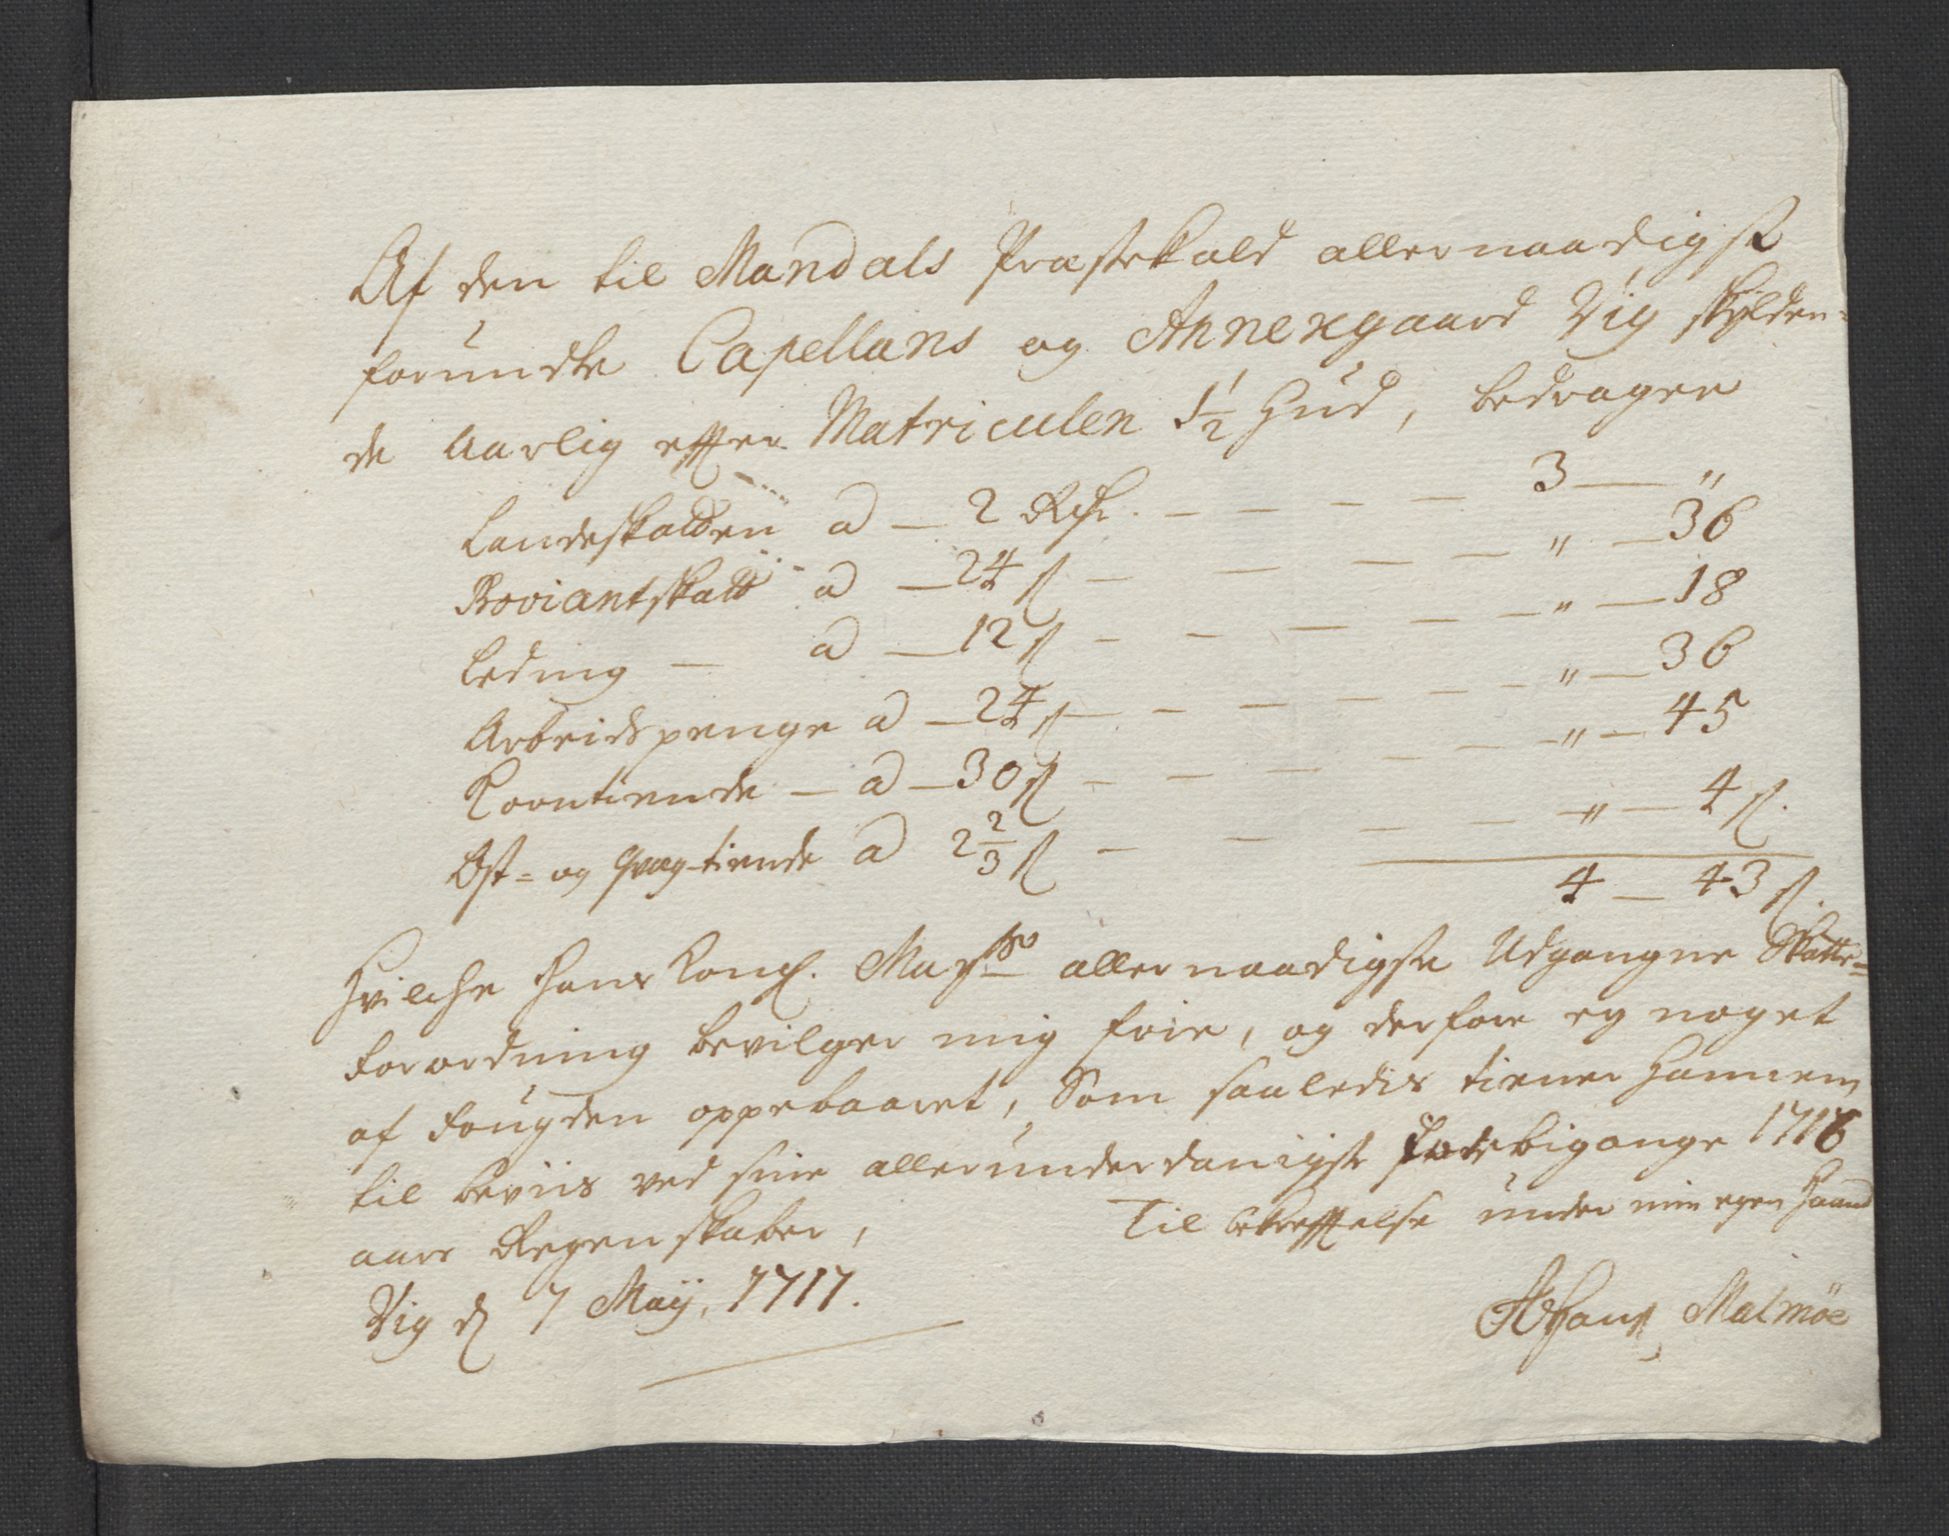 Af den til Mandals Præstekald allernaadigst
forundte Capellans og Annexgaard Vig skylden-
de Aarlig effter Matriculen 1 1/2 Hud, bedrager
Landeskatten a — 2 Rdr. — — — — 3 — "
Proviantskatt a — 24 s — — — — " — 36
Leding — a — 12 s — — — — — " — 18
Arbeidspenge a — 24 s — — — — — " — 36
Korntiende — a — 30 s — — — — — " — 45
Ost- og qvæg-tiende a 2 2/3 s — — — — " — 4 s.
4 — 43 s.
Hvilche Hans Kongl. Maysts allernaadigste Udgangne Skatte-
forordning bevilger mig frie, og derfore ey noget
af Fougden oppebaaret, Som saaledis tiener Hannem
til beviis ved sine allerunderdanigste forbigange 1716
aars Regenskaber, Til bekrefftelse under min egen Haand
Vig d 7 Maij, 1717.
Malmöe